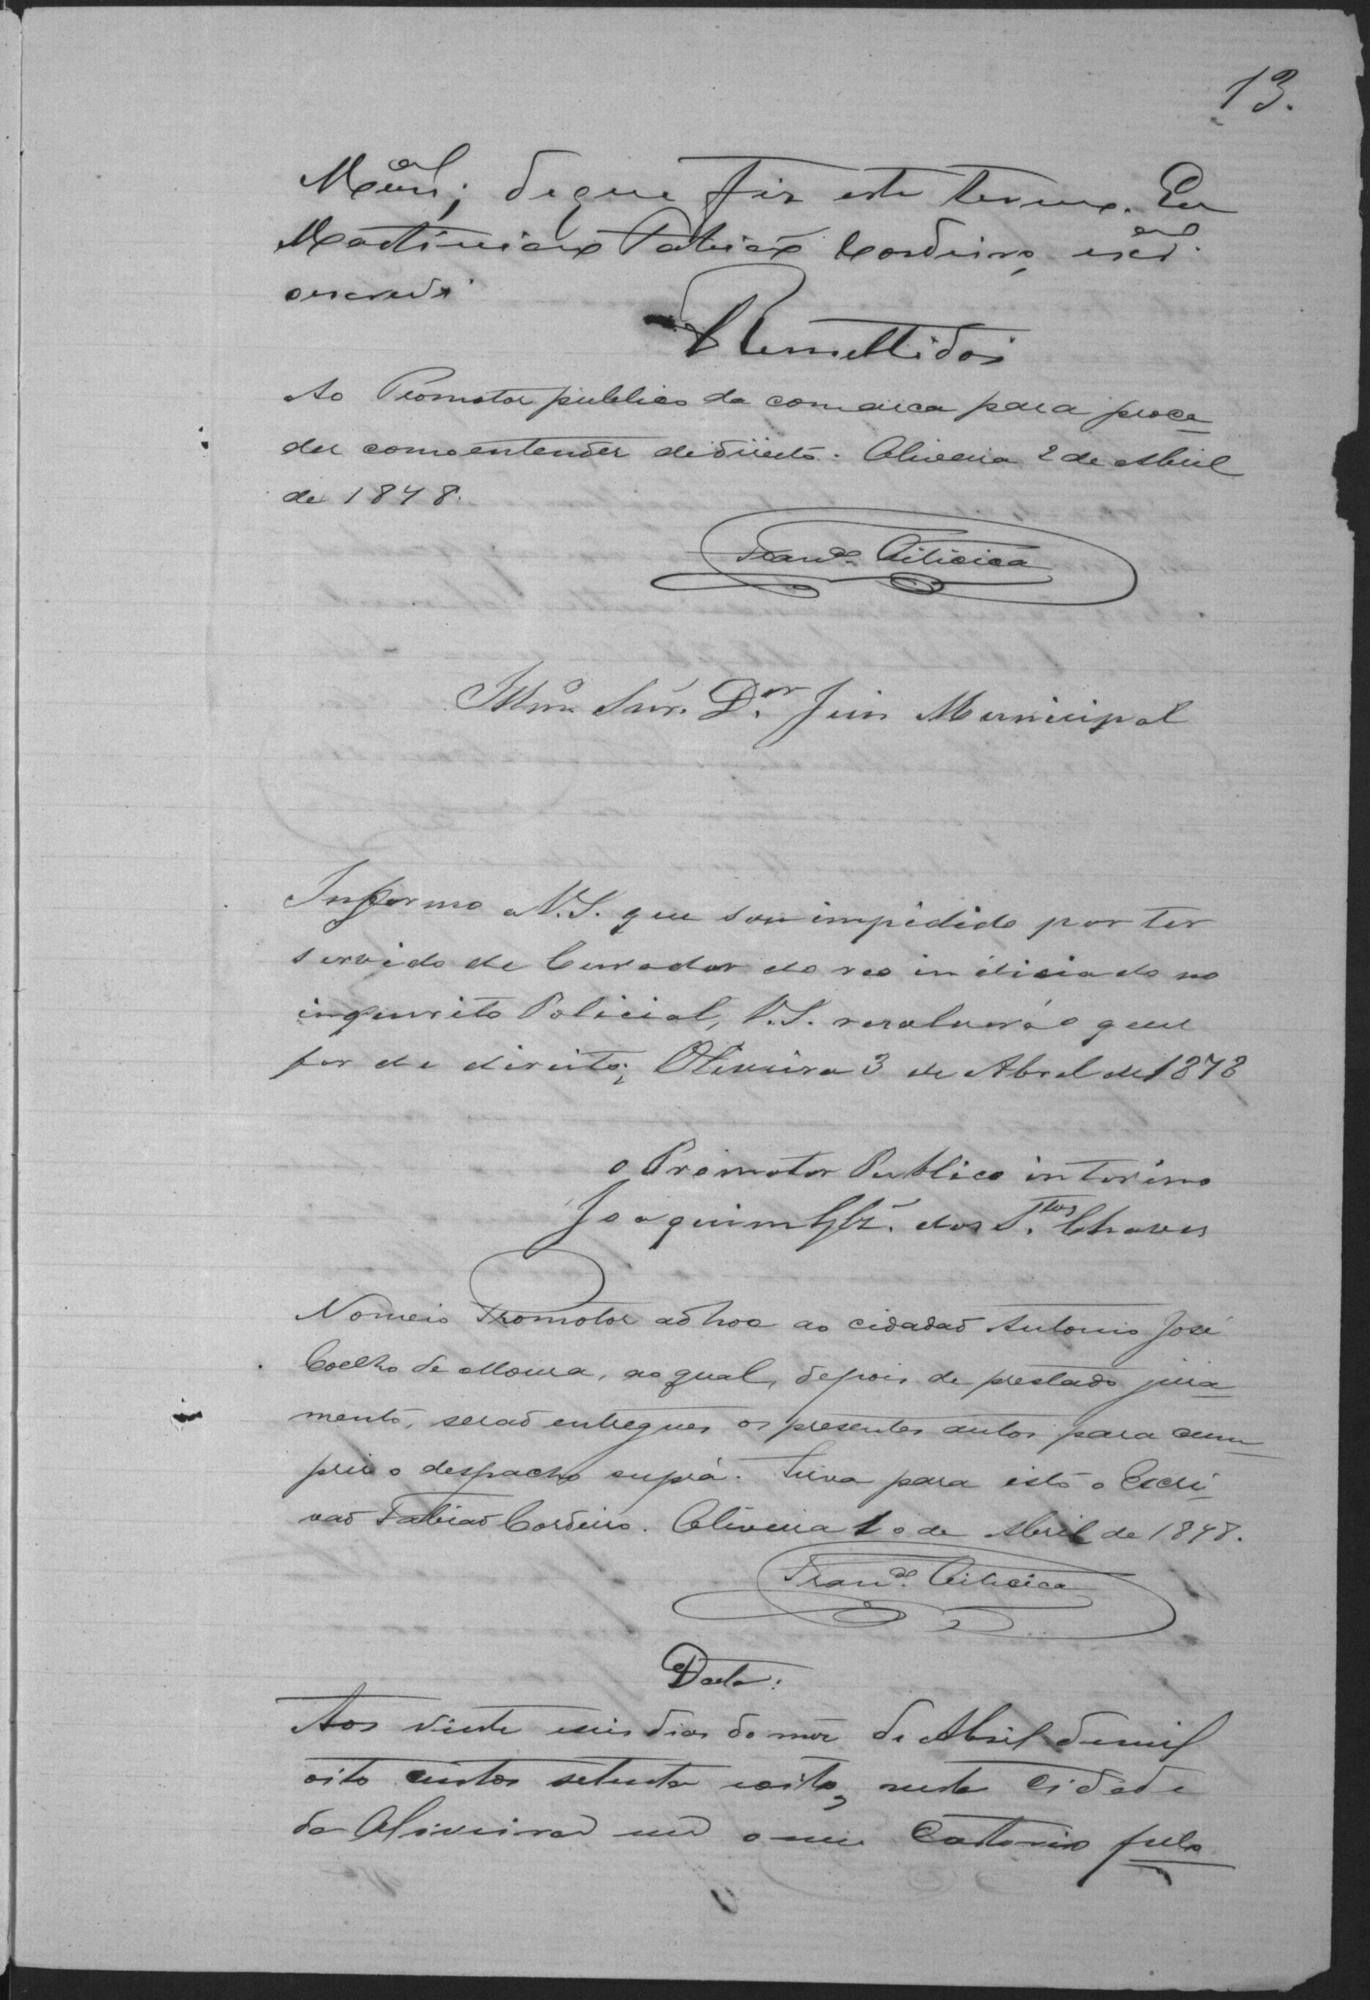 13.
de que fiz este termo. Eu
Martiniano Fabiaõ Cordeiro, escr.am
escrevi
Remettidos
Ao Promotor publico da comarca para proce-
der como entender de direito. Oliveira 2 de Abril
de 1878.
Illmo Snr. D.or Juiz Municipal
Informo a V. S. que sou impidido por ter
servido de Curador do reo indiciado no
inquerito Policial, V. S. resolverá o que
for de direito; Oliveira 3 de Abril de 1878
o Promotor Publico interino
Joaquim dos S.tos Chaves
Nomeio Promotor ad hoc ao cidadaõ Antonio José
Coelho de Moura, ao qual, depois de prestado jura-
mento, seraõ entregues os presentes autos para cum-
prir o despacho suprá. Sirva para isto o Escri-
vaõ Fabiaõ Cordeiro. Oliveira de Abril de 1878.
Data:
Aos vinte seis dias do mez de Abril de mil
oito centos setenta e oito, nesta Cidade
da Oliveira em o meu Cartorio pelo